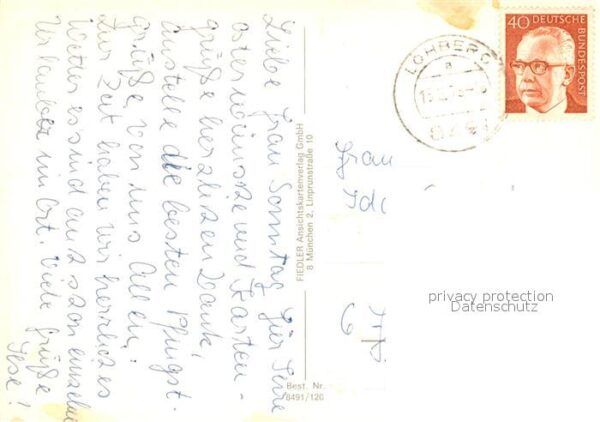 Liebe Frau Sonntag. Für Ihre
osterwünsche und Karten-
grüße herzlichen Dank,
Anstelle die besten Pfingst-
grüße von uns Allen.
Zur Zeit haben wir herrliches
Wetter es sind auch schon einzelne
Urlauber im Ort. Viele grüße
FIEDLER Ansichtskartenverlag GmbH
8 München 2, Linprunstraße 10
Best. Nr.
8491/126
LOHBERG
a
40 DEUTSCHE
BUNDESPOST
Frau
6
privacy protection
Datenschutz